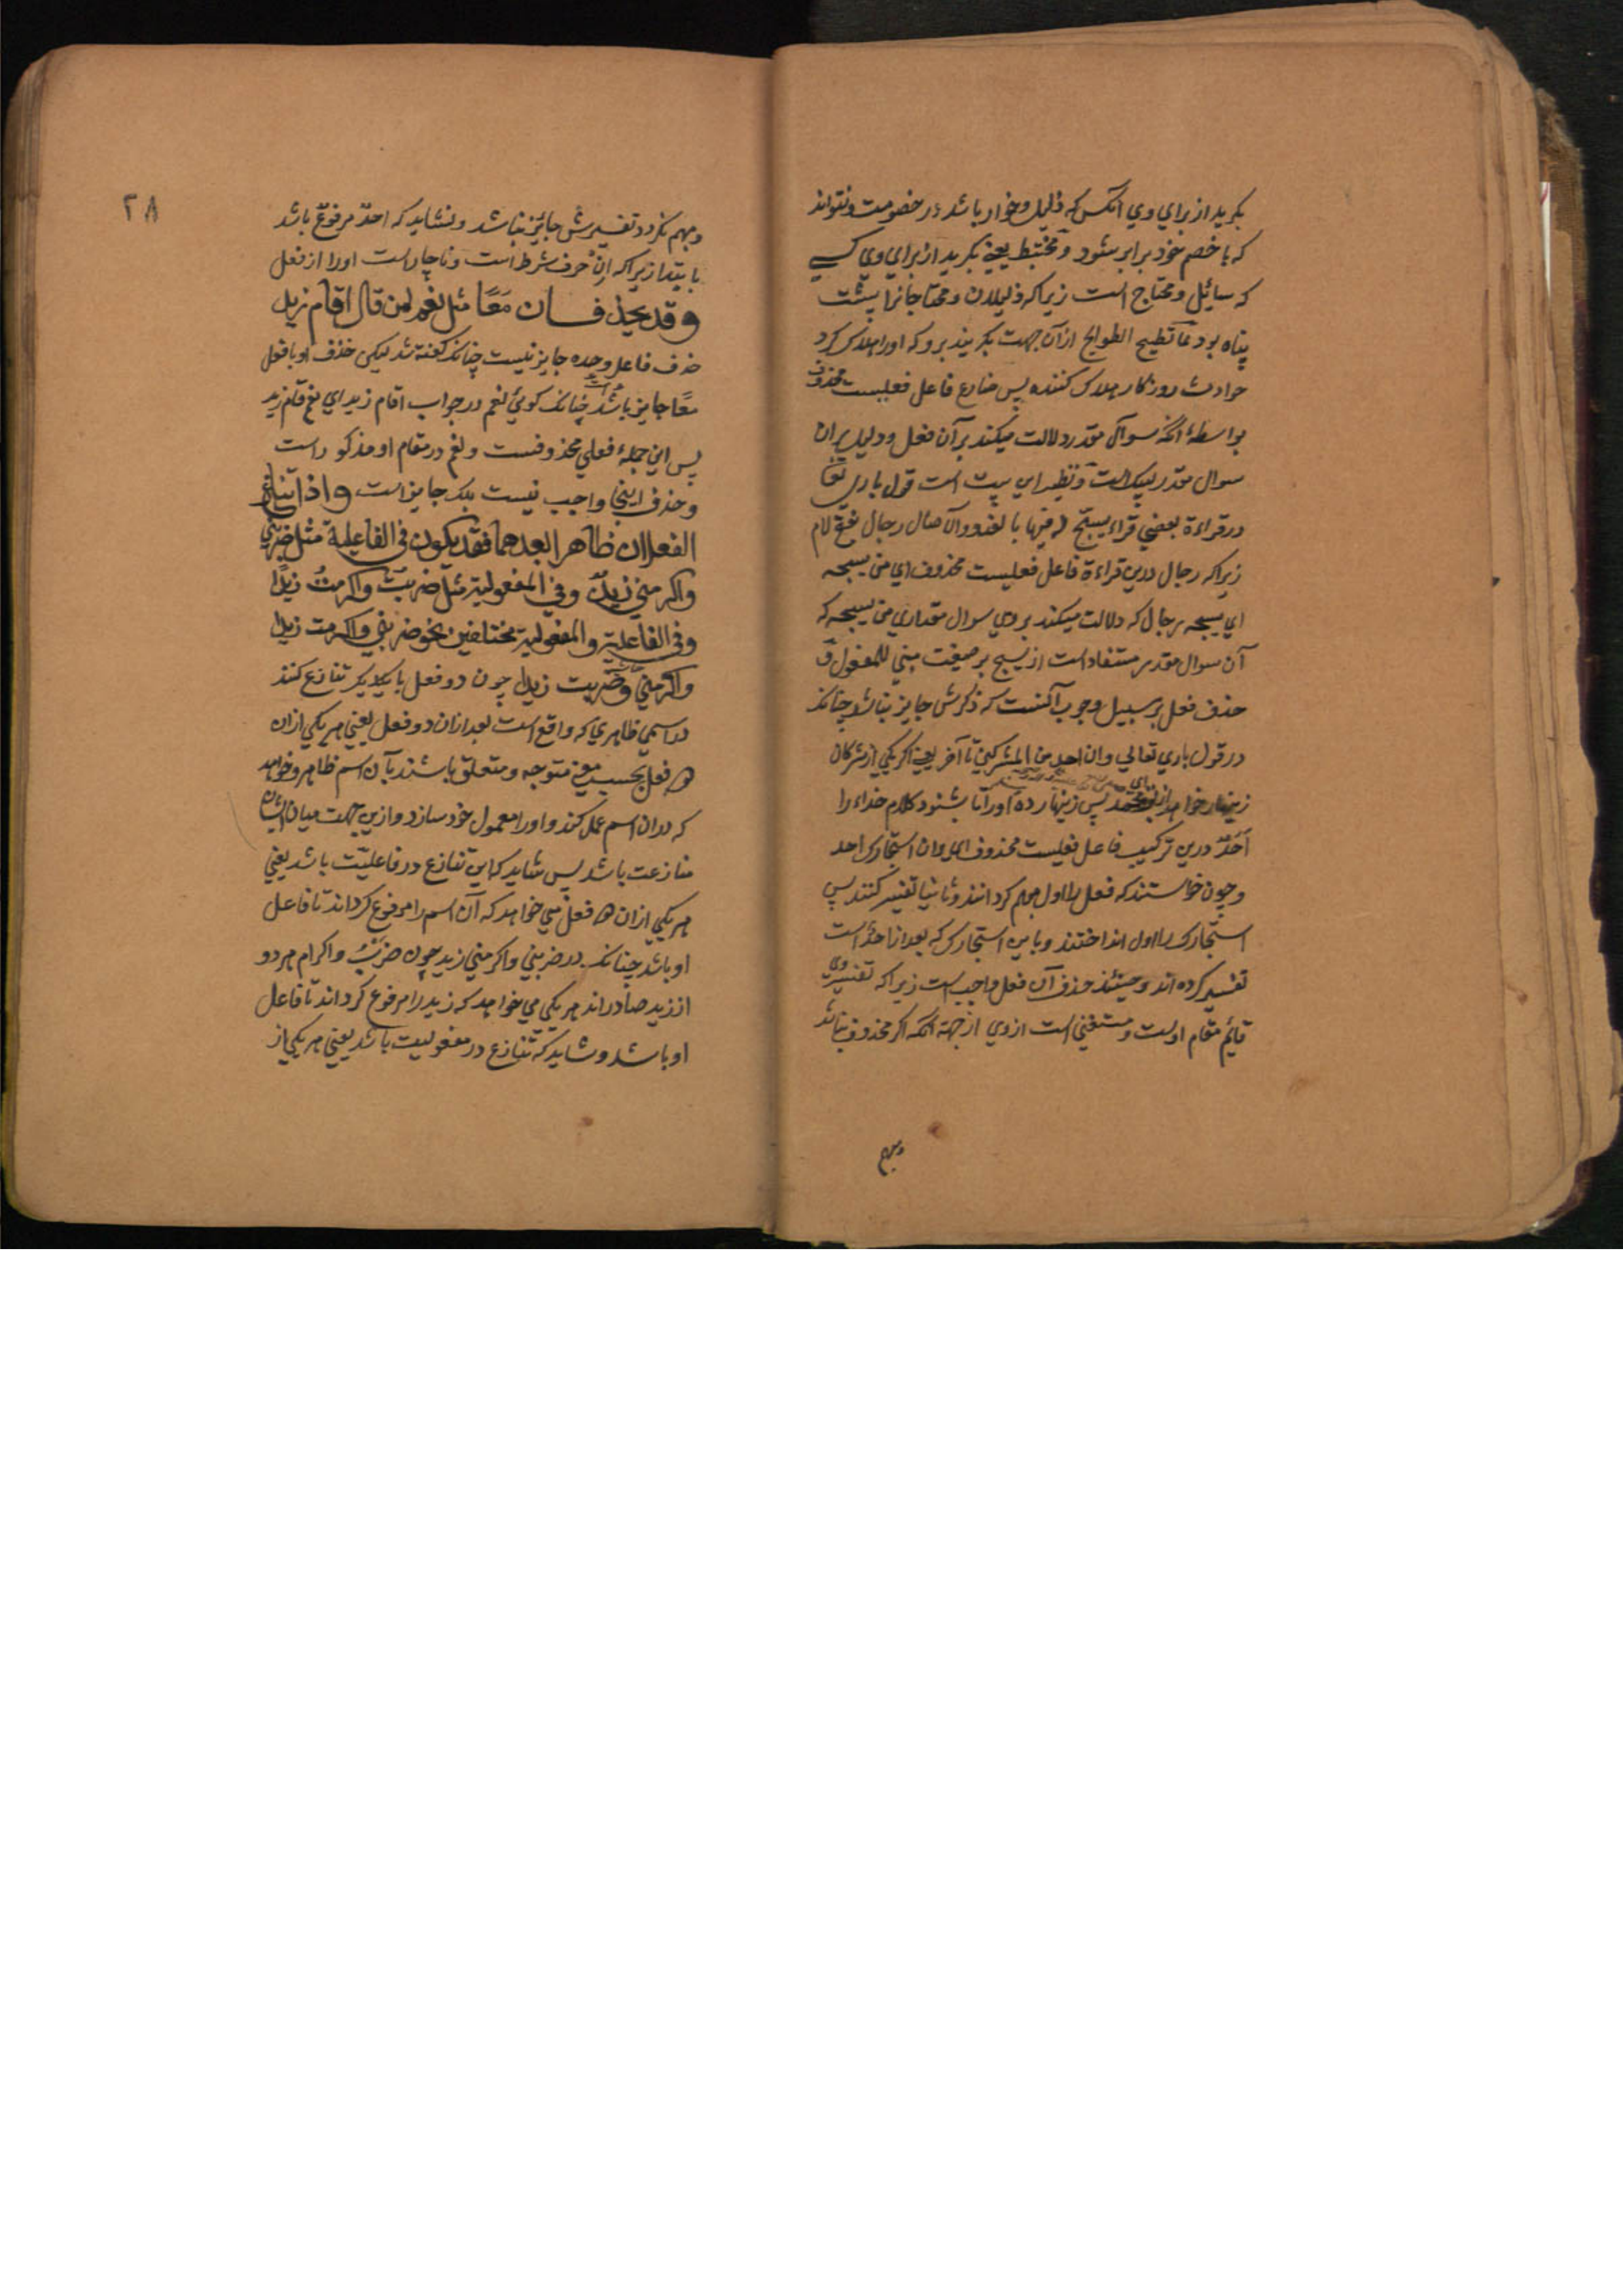 بکرید از برای وی انکس که ذلیل و خوار باشد در خصومت و نتواند
که با خصم خود برابر شود و مختبط یعنی بکرید از برای وی کسی
که سائل و محتاج است زیرا که ذلیلان و محتاجانرا پشت
پناه بود مما تطیح الطوایح از آن جهت بکریند برو که اورا هلاک کرد
حوادث روزکار هلاک کننده پس ضارع فاعل فعلیست محذوف
بواسطهٔ انکه سوال مقدر دلالت میکند بر آن فعل و دلیل بران
سوال مقدر لیبک است و نظیر این بیت است قول باری تعا
در قراءة بعضی قراء یسبح له فیها بالغدو والآصال رجال بفتح لام
زیرا که رجال درین قراءة فاعل فعلیست محذوف ای من یسبحه
ای یسبحه رجال که دلالت میکند بروی سوال مقدر ای من یسبحه که
آن سوال مقدر مستفاد است از یسبح بر صیغت مبنی للمفعول و
حذف فعل بر سبیل وجوب آنست که ذکرش جایز نباشد چنانک
در قول باری تعالی وان احد من المشرکین تا آخر یعنی اکر یکی از مشرکان
زینهار خواهد از تو پس زینهار ده اورا تا بشنود کلام خداء را
احد درین ترکیب فاعل فعلیست محذوف ای وان استجارک احد
و چون خواستند که فعل را اول مبهم کردانند و ثانیا تفسیر کنند پس
استجارک را اول انداختند و باین استجارک که بعد از احد است
تفسیر کرده اند و حینئذ حذف آن فعل واجب است زیرا که تفسیر وی
قایم مقام اوست و مستغنی است از وی از جهة انکه اکر محذوف نباشد
ومبهم
۲۸
ومبهم نکردد تفسیرش جائز نباشد و نشاید که احد مرفوع باشد
بابتدا زیرا که ان حرف شرط است و ناچارست اورا از فعل
وقد یحذفان معًا مثل نعم لمن قال اقام زید
حذف فاعل وحده جایز نیست چنانک کفته شد لیکن حذف او با فعل
معًا جایز باشد چنانک کوئی نعم در جواب اقام زید ای نعم قام زید
پس این جملهٔ فعلی محذوفست و نعم در مقام او مذکور است
و حذف اینجا واجب نیست بلک جایز است واذا تنازع
الفعلان ظاهرا بعدهما فقد یکون فی الفاعلیة مثل ضربنی
واکرمنی زیدٌ وفی المفعولیة مثل ضربت واکرمت زیدًا
وفی الفاعلیة والمفعولیة مختلفین نحو ضربنی واکرمت زیدا
واکرمنی وضربت زیدا چون دو فعل با یکدیکر تنازع کنند
در اسمی ظاهری که واقع است بعد از ان دو فعل یعنی هر یکی از ان
دو فعل بحسب معنی متوجه و متعلق باشند بآن اسم ظاهر و خواهد
که در ان اسم عمل کند و اورا معمول خود سازد و ازین جهت میان ایشان
منازعت باشد پس شاید که این تنازع در فاعلیت باشد یعنی
هر یکی از ان دو فعل می خواهد که آن اسم را مرفوع کرداند تا فاعل
او باشد چنانک در ضربنی واکرمنی زید چون ضرب و اکرام هر دو
از زید صادراند هر یکی می خواهد که زید را مرفوع کرداند تا فاعل
او باشد و شاید که تنازع در مفعولیت باشد یعنی هر یکی از